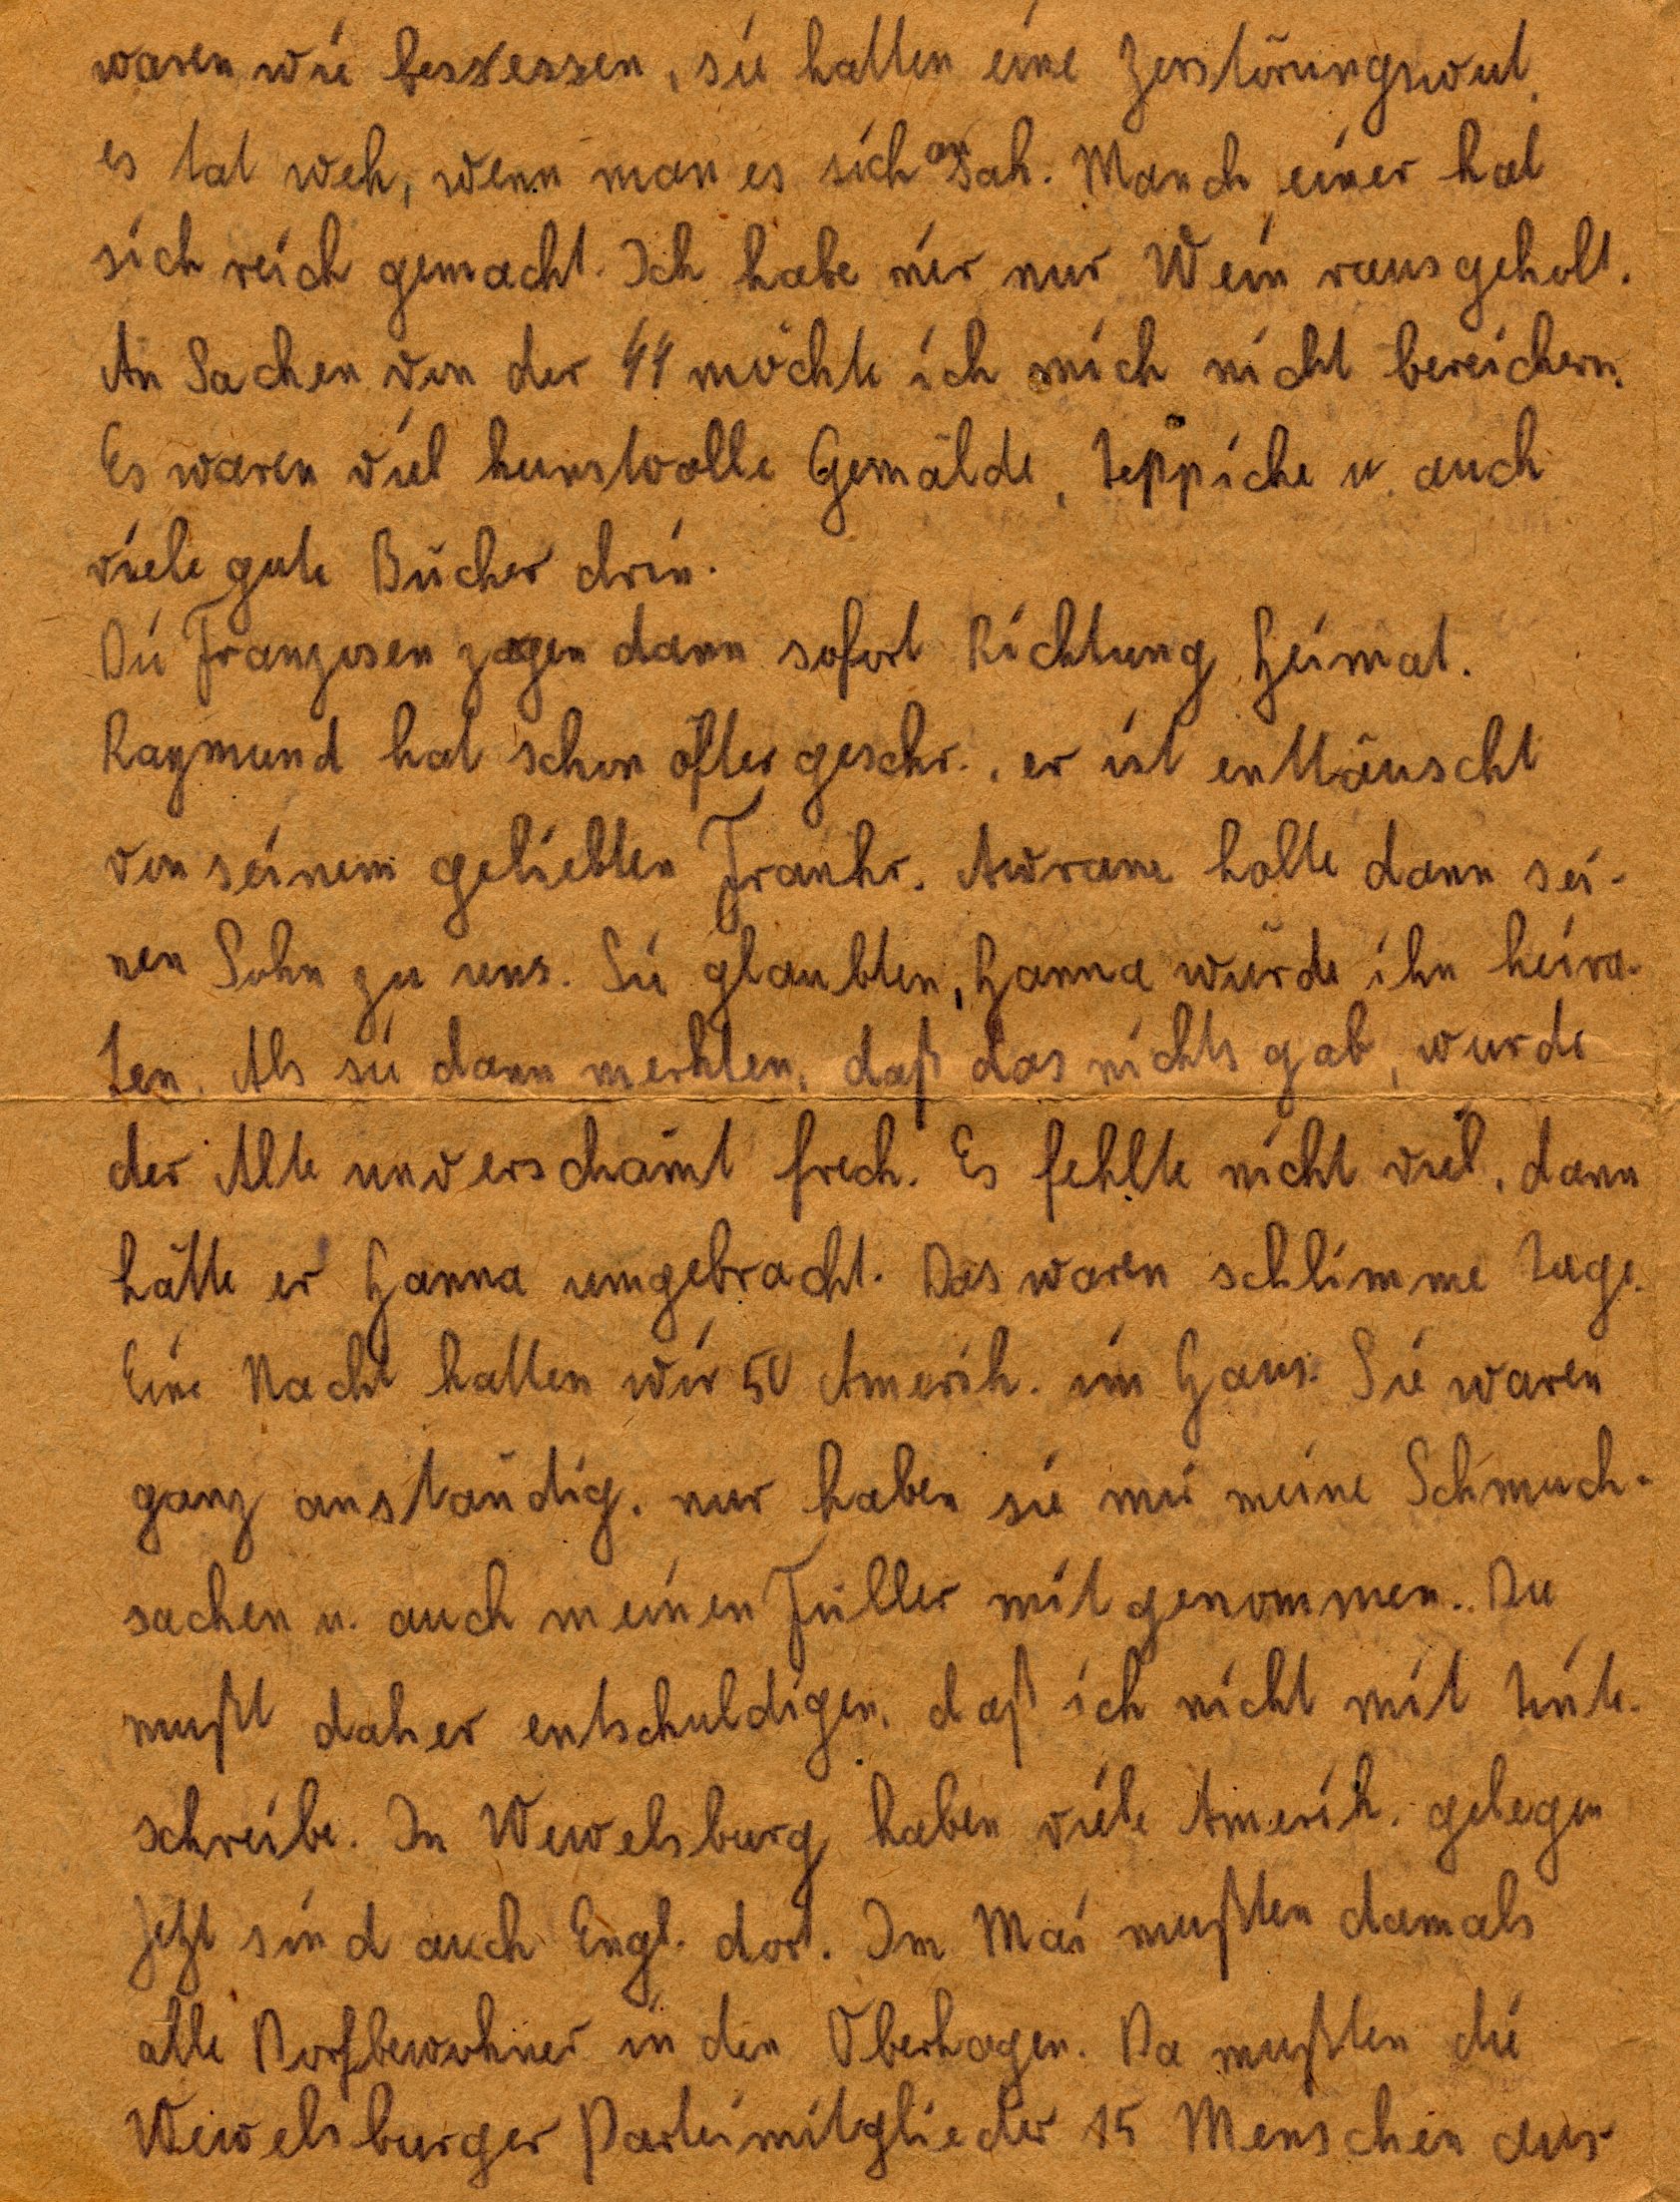 waren wie bessessen, sie hatten eine Zerstörungswut,
es tat weh, wenn man es sich ansah. Manch einer hat
sich reich gemacht. Ich habe mir nur Wein rausgeholt.
An Sachen von der SS möchte ich mich nicht bereichern.
Es waren viel kunstvolle Gemälde, Teppiche u. auch
viele gute Bücher drin.
Die Franzosen zogen dann sofort Richtung Heimat.
Raymund hat schon öfter geschr., er ist enttäuscht
von seinem geliebten Frankr. Awrame holte dann sei-
nen Sohn zu uns. Sie glaubten, Hanna würde ihn heira-
ten. Als sie dann merkten, daß das nichts gab, wurde
der Alte unverschämt frech. Es fehlte nicht viel, dann
hätte er Hanna umgebracht. Das waren schlimme Tage.
Eine Nacht hatten wir 50 Amerik. im Haus. Sie waren
ganz anständig, nur haben sie mir meine Schmuck-
sachen u. auch meinen Füller mitgenommen. Du
mußt daher entschuldigen, daß ich nicht mit Tinte
schreibe. In Wewelsburg haben viele Amerik. gelegen
Jetzt sind auch Engl. dort. Im Mai mußten damals
alle Dorfbewohner in den Oberhagen. Da mußten die
Wewelsburger Parteimitglieder 15 Menschen aus-